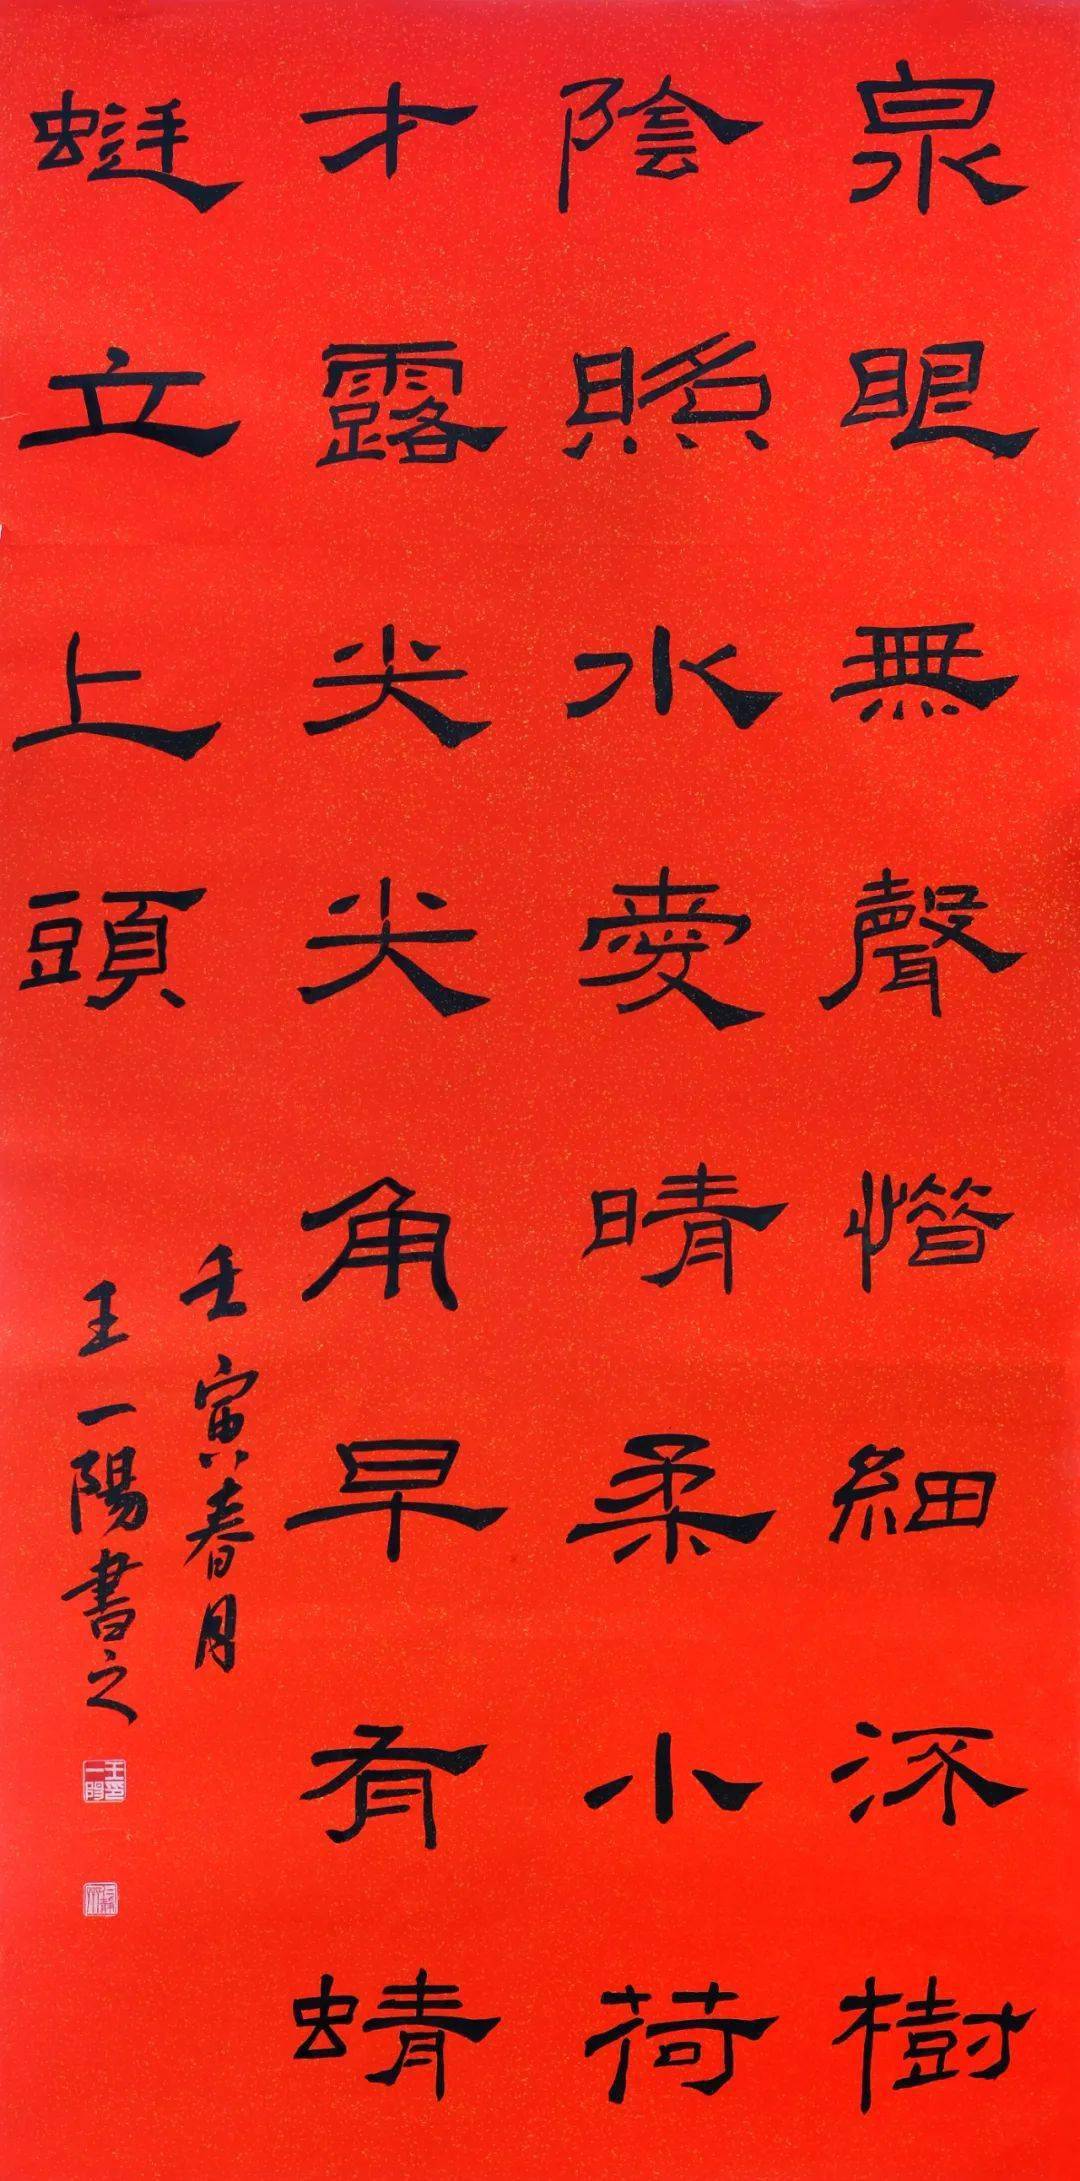 泉眼無聲惜細流樹
陰照水愛晴柔小荷
才露尖尖角早有蜻
蜓立上頭
壬寅春月
王一陽書之
王一陽印